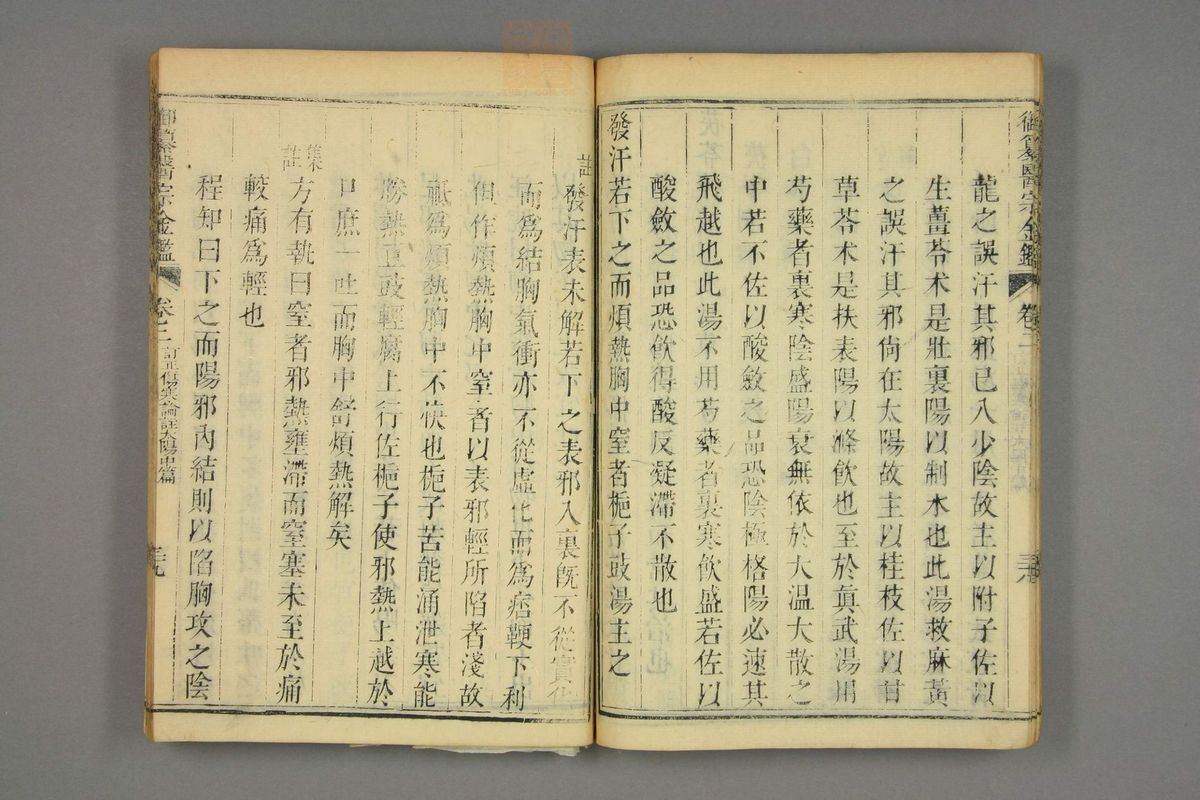 御纂醫宗金鑑 卷二 三六
龍之誤汗其邪已入少陰故主以附子佐以
生薑苓术是壯裏陽以制水也此湯救麻黃
之誤汗其邪尙在太陽故主以桂枝佐以甘
草苓术是扶表陽以滌飲也至於眞武湯用
芍藥者裏寒陰盛陽衰無依於大溫大散之
中若不佐以酸斂之品恐陰極格陽必速其
飛越也此湯不用芍藥者裏寒飲盛若佐以
酸斂之品恐飲得酸反凝滯不散也
發汗若下之而煩熱胸中窒者梔子豉湯主之
註 發汗表未解若下之表邪入裏旣不從實化
而爲結胸氣衝亦不從虛化而爲痞鞕下利
但作煩熱胸中窒者以表邪輕所陷者淺故
祗爲煩熱胸中不快也梔子苦能涌泄寒能
勝熱豆豉輕腐上行佐梔子使邪熱上越於
口庶一吐而胸中舒煩熱解矣
集註 方有執曰窒者邪熱壅滯而窒塞未至於痛
較痛爲輕也
程知曰下之而陽邪內結則以陷胸攻之陰
御纂醫宗金鑑 卷二 訂正傷寒論註太陽中篇 三九